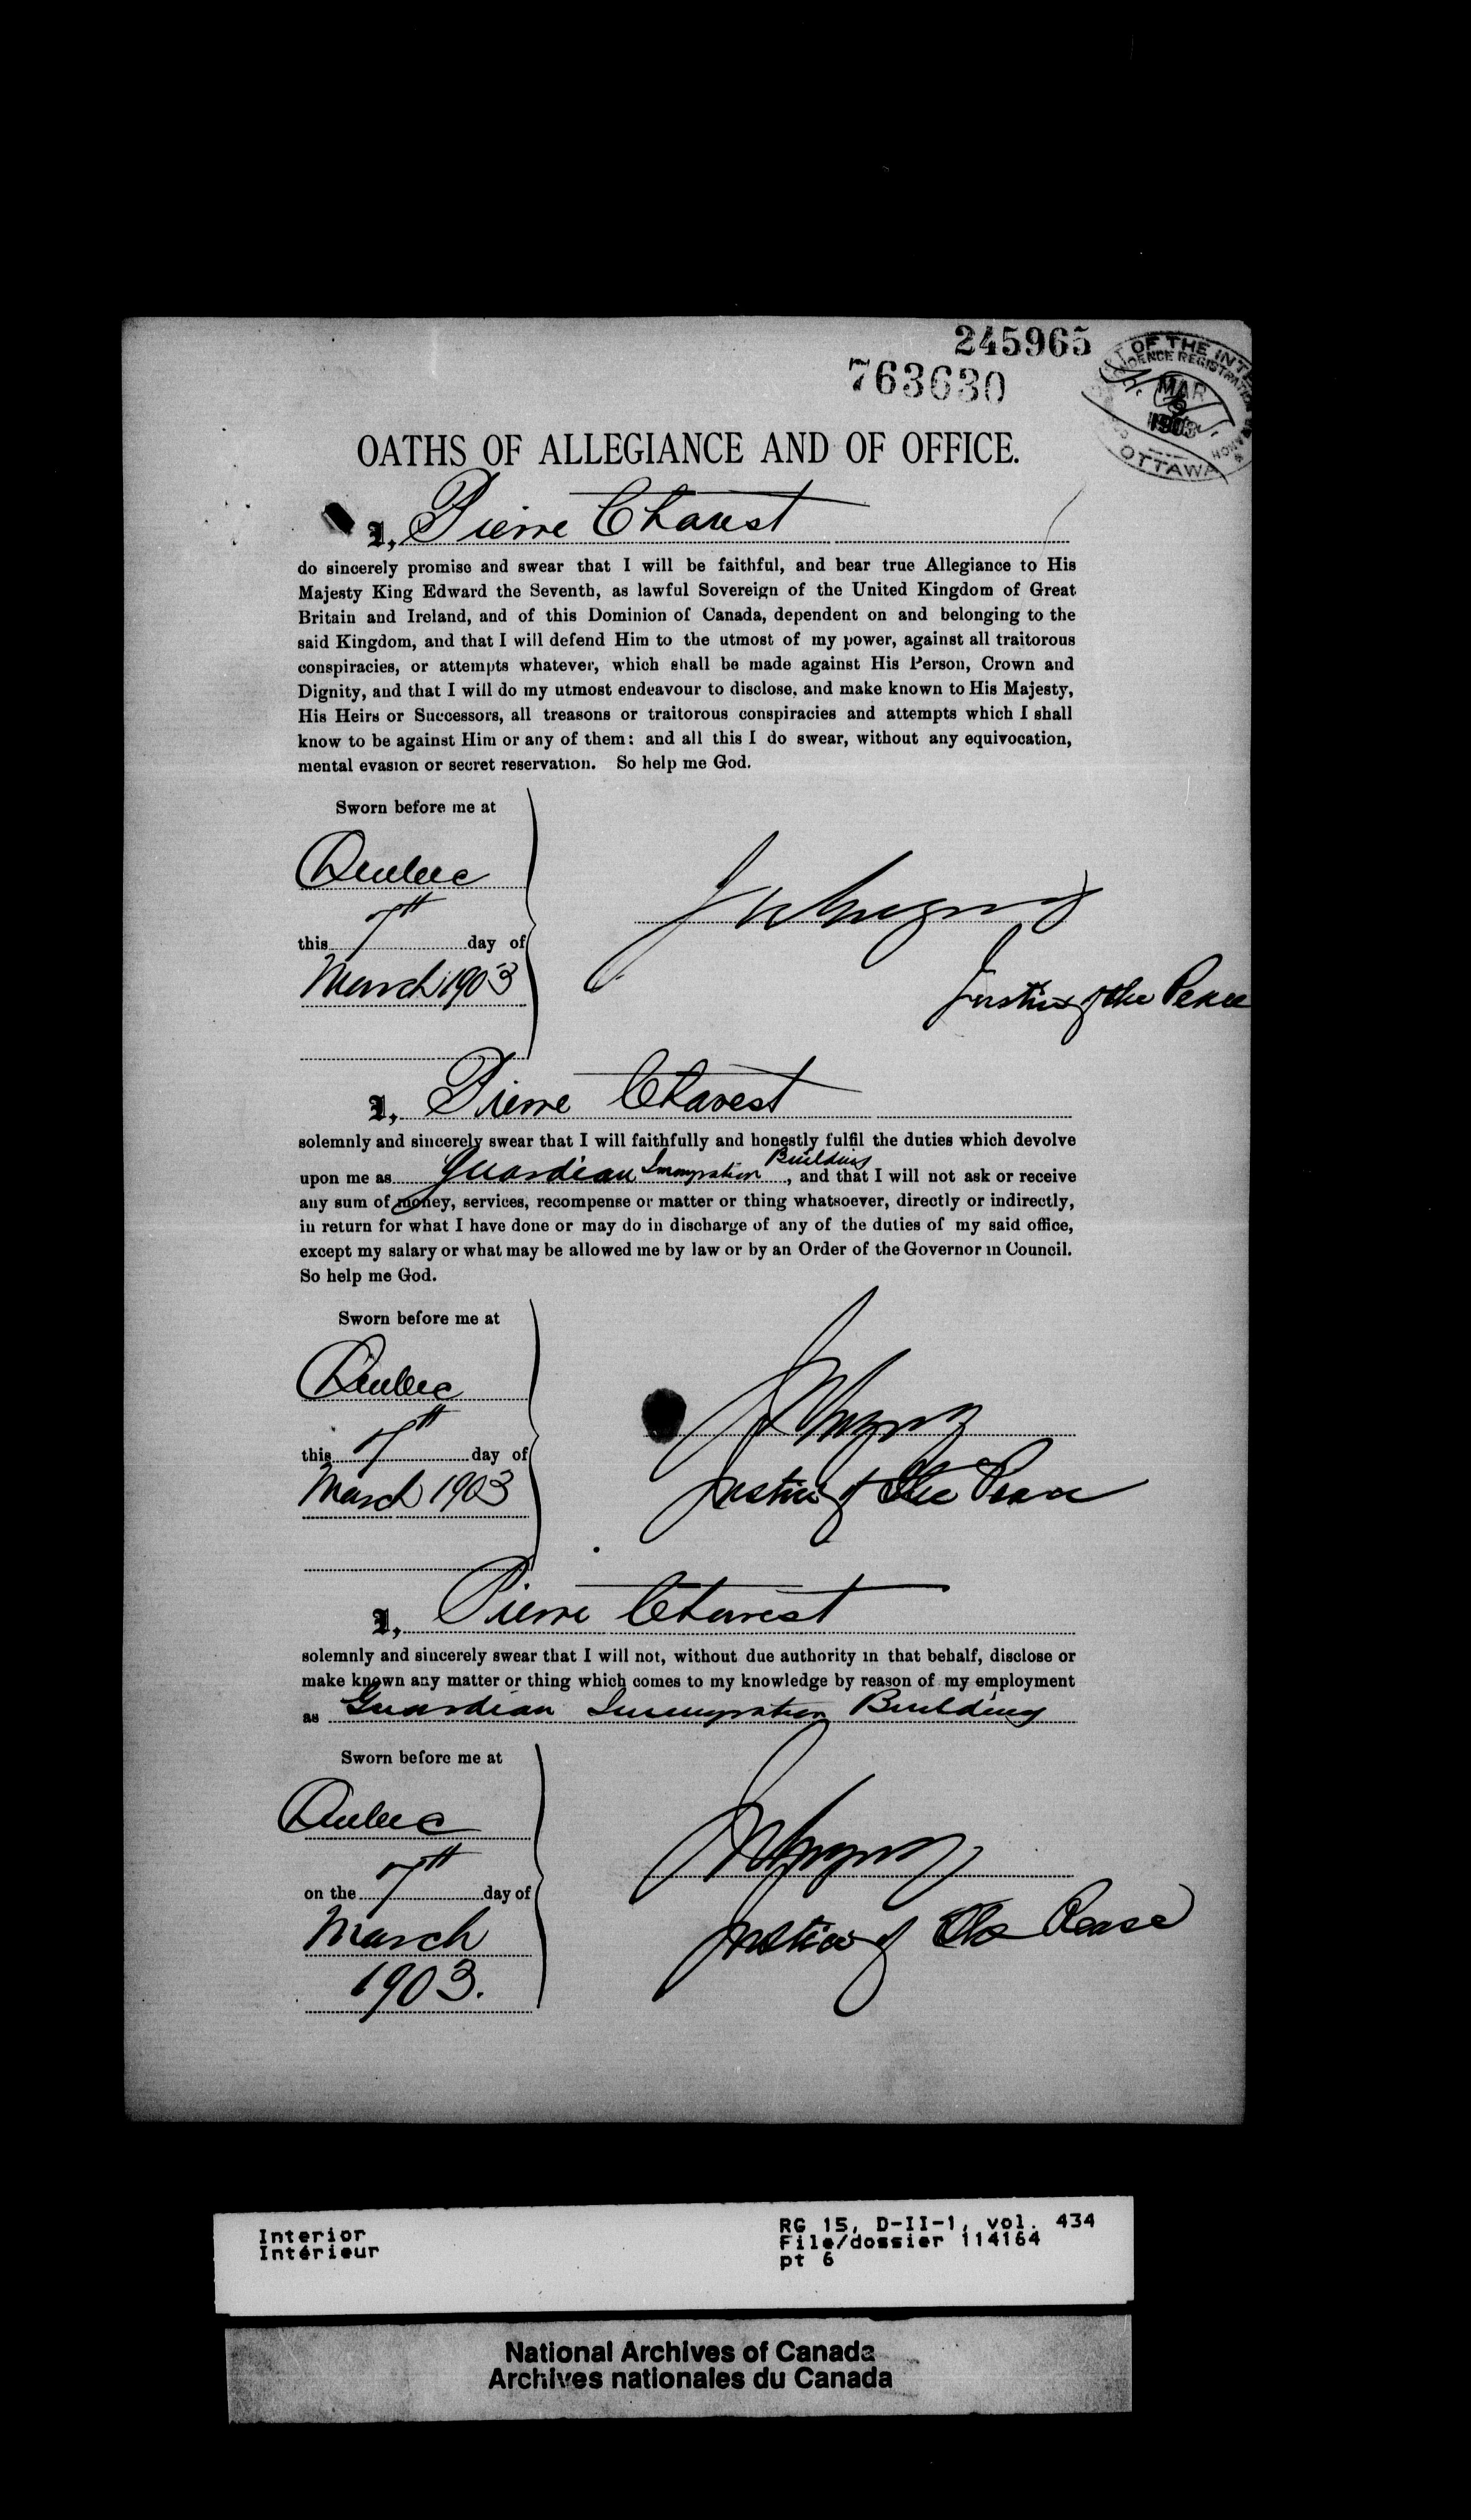 245965
763630
DEPT OF THE INTERIOR
CORRESPONDENCE REGISTRATION BRANCH
MAR
9
1903
OTTAWA
OATHS OF ALLEGIANCE AND OF OFFICE.
I, Pierre Charest
do sincerely promise and swear that I will be faithful, and bear true Allegiance to His
Majesty King Edward the Seventh, as lawful Sovereign of the United Kingdom of Great
Britain and Ireland, and of this Dominion of Canada, dependent on and belonging to the
said Kingdom, and that I will defend Him to the utmost of my power, against all traitorous
conspiracies, or attempts whatever, which shall be made against His Person, Crown and
Dignity, and that I will do my utmost endeavour to disclose, and make known to His Majesty,
His Heirs or Successors, all treasons or traitorous conspiracies and attempts which I shall
know to be against Him or any of them: and all this I do swear, without any equivocation,
mental evasion or secret reservation. So help me God.
Sworn before me at
Quebec
this 7th day of
March 1903
Justice of the Peace
I, Pierre Charest
solemnly and sincerely swear that I will faithfully and honestly fulfil the duties which devolve
upon me as Guardian Immigration Building, and that I will not ask or receive
any sum of money, services, recompense or matter or thing whatsoever, directly or indirectly,
in return for what I have done or may do in discharge of any of the duties of my said office,
except my salary or what may be allowed me by law or by an Order of the Governor in Council.
So help me God.
Sworn before me at
Quebec
this 7th day of
March 1903
Justice of the Peace
I, Pierre Charest
solemnly and sincerely swear that I will not, without due authority in that behalf, disclose or
make known any matter or thing which comes to my knowledge by reason of my employment
as Guardian Immigration Building
Sworn before me at
Quebec
on the 7th day of
March
1903.
Justice of the Peace
Interior
Intérieur
RG 15, D-II-1, vol. 434
File/dossier 114164
pt 6
National Archives of Canada
Archives nationales du Canada